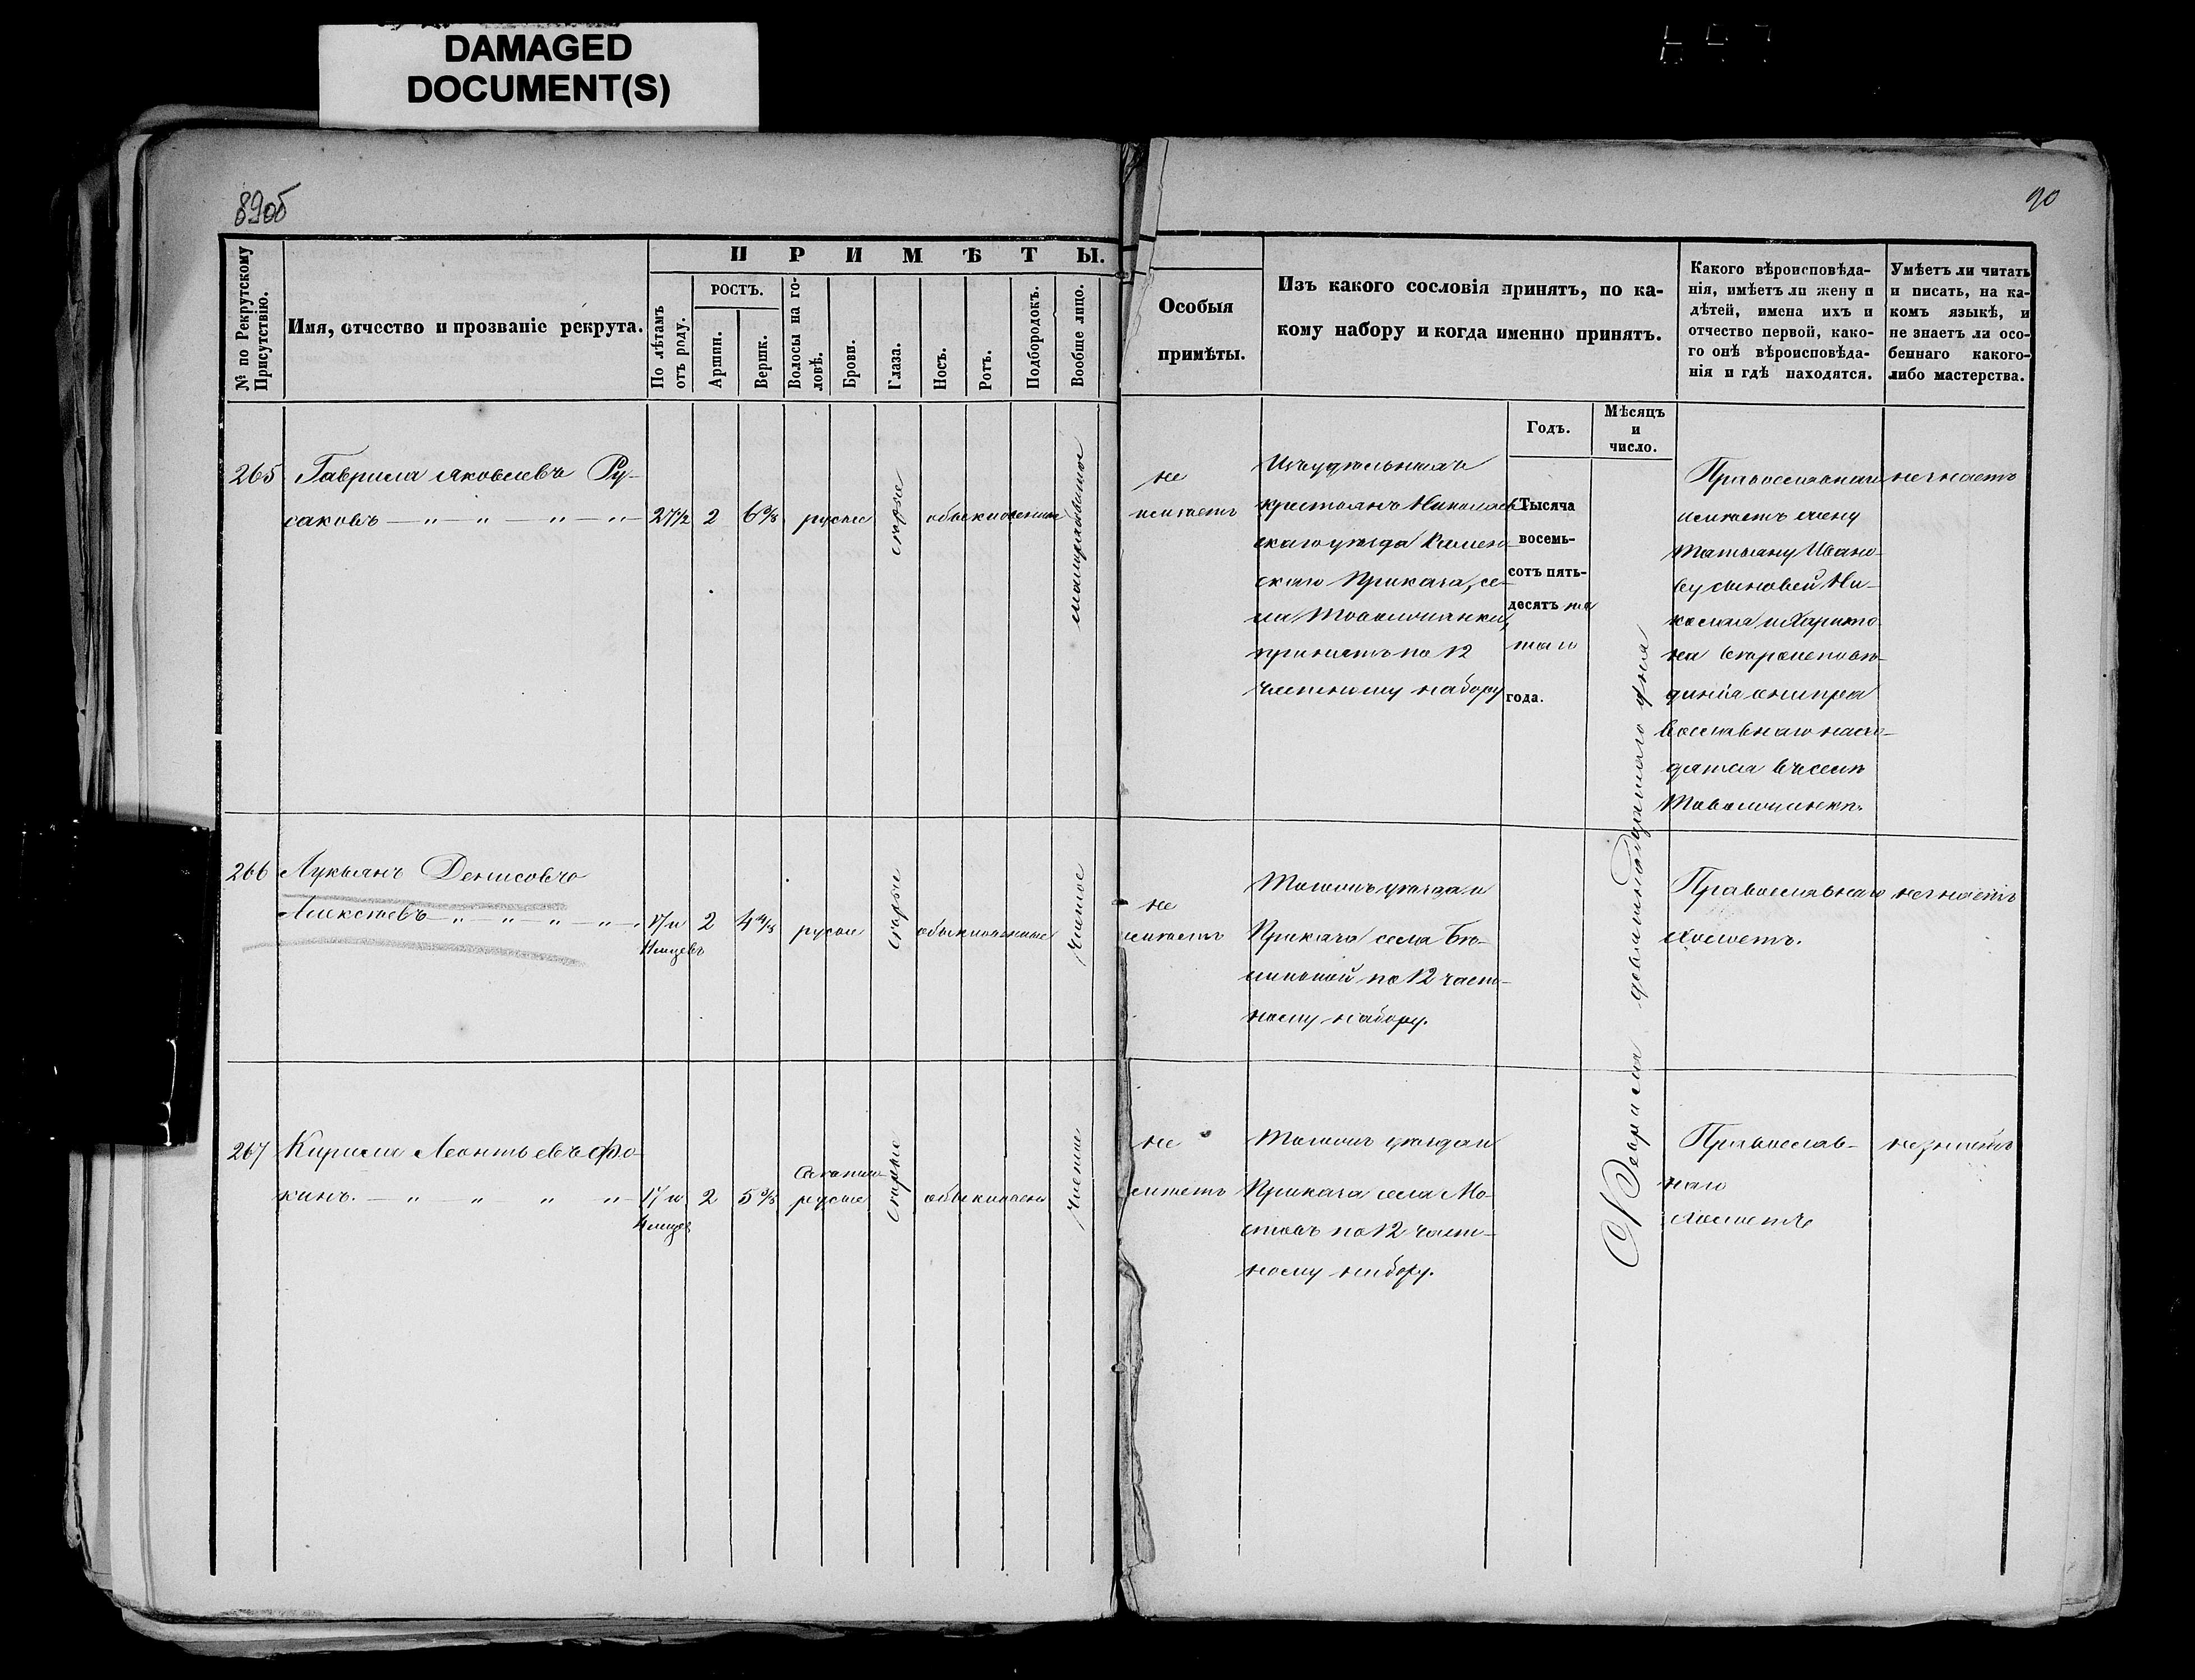 DAMAGED
DOCUMENT(S)
89об
90
№ по Рекрутскому Присутствію.
Имя, отчество и прозваніе рекрута.
ПРИМѢТЫ.
По лѣтамъ отъ роду.
РОСТЪ.
Аршин.
Вершк.
Волосы на головѣ.
Брови.
Глаза.
Носъ.
Ротъ.
Подбородокъ.
Вообще лицо.
Особыя
примѣты.
Изъ какого сословія принятъ, по ка-
кому набору и когда именно принятъ.
Годъ.
Мѣсяцъ
и
число.
Какого вѣроисповѣда-
нія, имѣетъ ли жену и
дѣтей, имена ихъ и
отчество первой, како-
го онѣ вѣроисповѣда-
нія и гдѣ находятся.
Умѣетъ ли читать
и писать, на ка-
комъ языкѣ, и
не знаетъ ли осо-
беннаго какого-
либо мастерства.
265 Гаврила Яковлевъ Ру-
саковъ — „ — „ — „ — „ — 27½ 2 6⅜ русые сѣрые обыкновенные
не
имѣетъ
Изъ удѣльныхъ
крестьянъ Николаев-
скаго уѣзда Камен-
скаго Приказа, се-
ла Таволожанки,
принятъ по 12
частному набору
Тысяча
восемь-
сотъ пять-
десятъ пя
таго
года.
Февраля двѣнадцатаго дня
Православнаго
имѣетъ жену
Татьяну Ивано-
ву сыновей Ни-
колая и Харито
на вѣроисповѣ-
данія они пра
вославнаго нахо-
дятся въ селѣ
Таволожанкѣ.
не знаетъ
266 Лукьянъ Денисовъ
Алексѣевъ — „ — „ — „ — „ — 2 4⅘ русые сѣрые обыкновенные чистое
не
имѣетъ
Того же уѣзда и
Приказа села
по 12 част-
ному набору.
Православнаго
холостъ.
не знаетъ
267 Кирила Леонтьевъ Фо
кинъ. — „ — „ „ „ — 2 5⅜ русые сѣрые обыкновен чистое
не
имѣетъ
Того же уѣзда и
Приказа села Мо-
стовъ по 12 част-
ному набору.
Православ-
наго
холостъ
не знаетъ